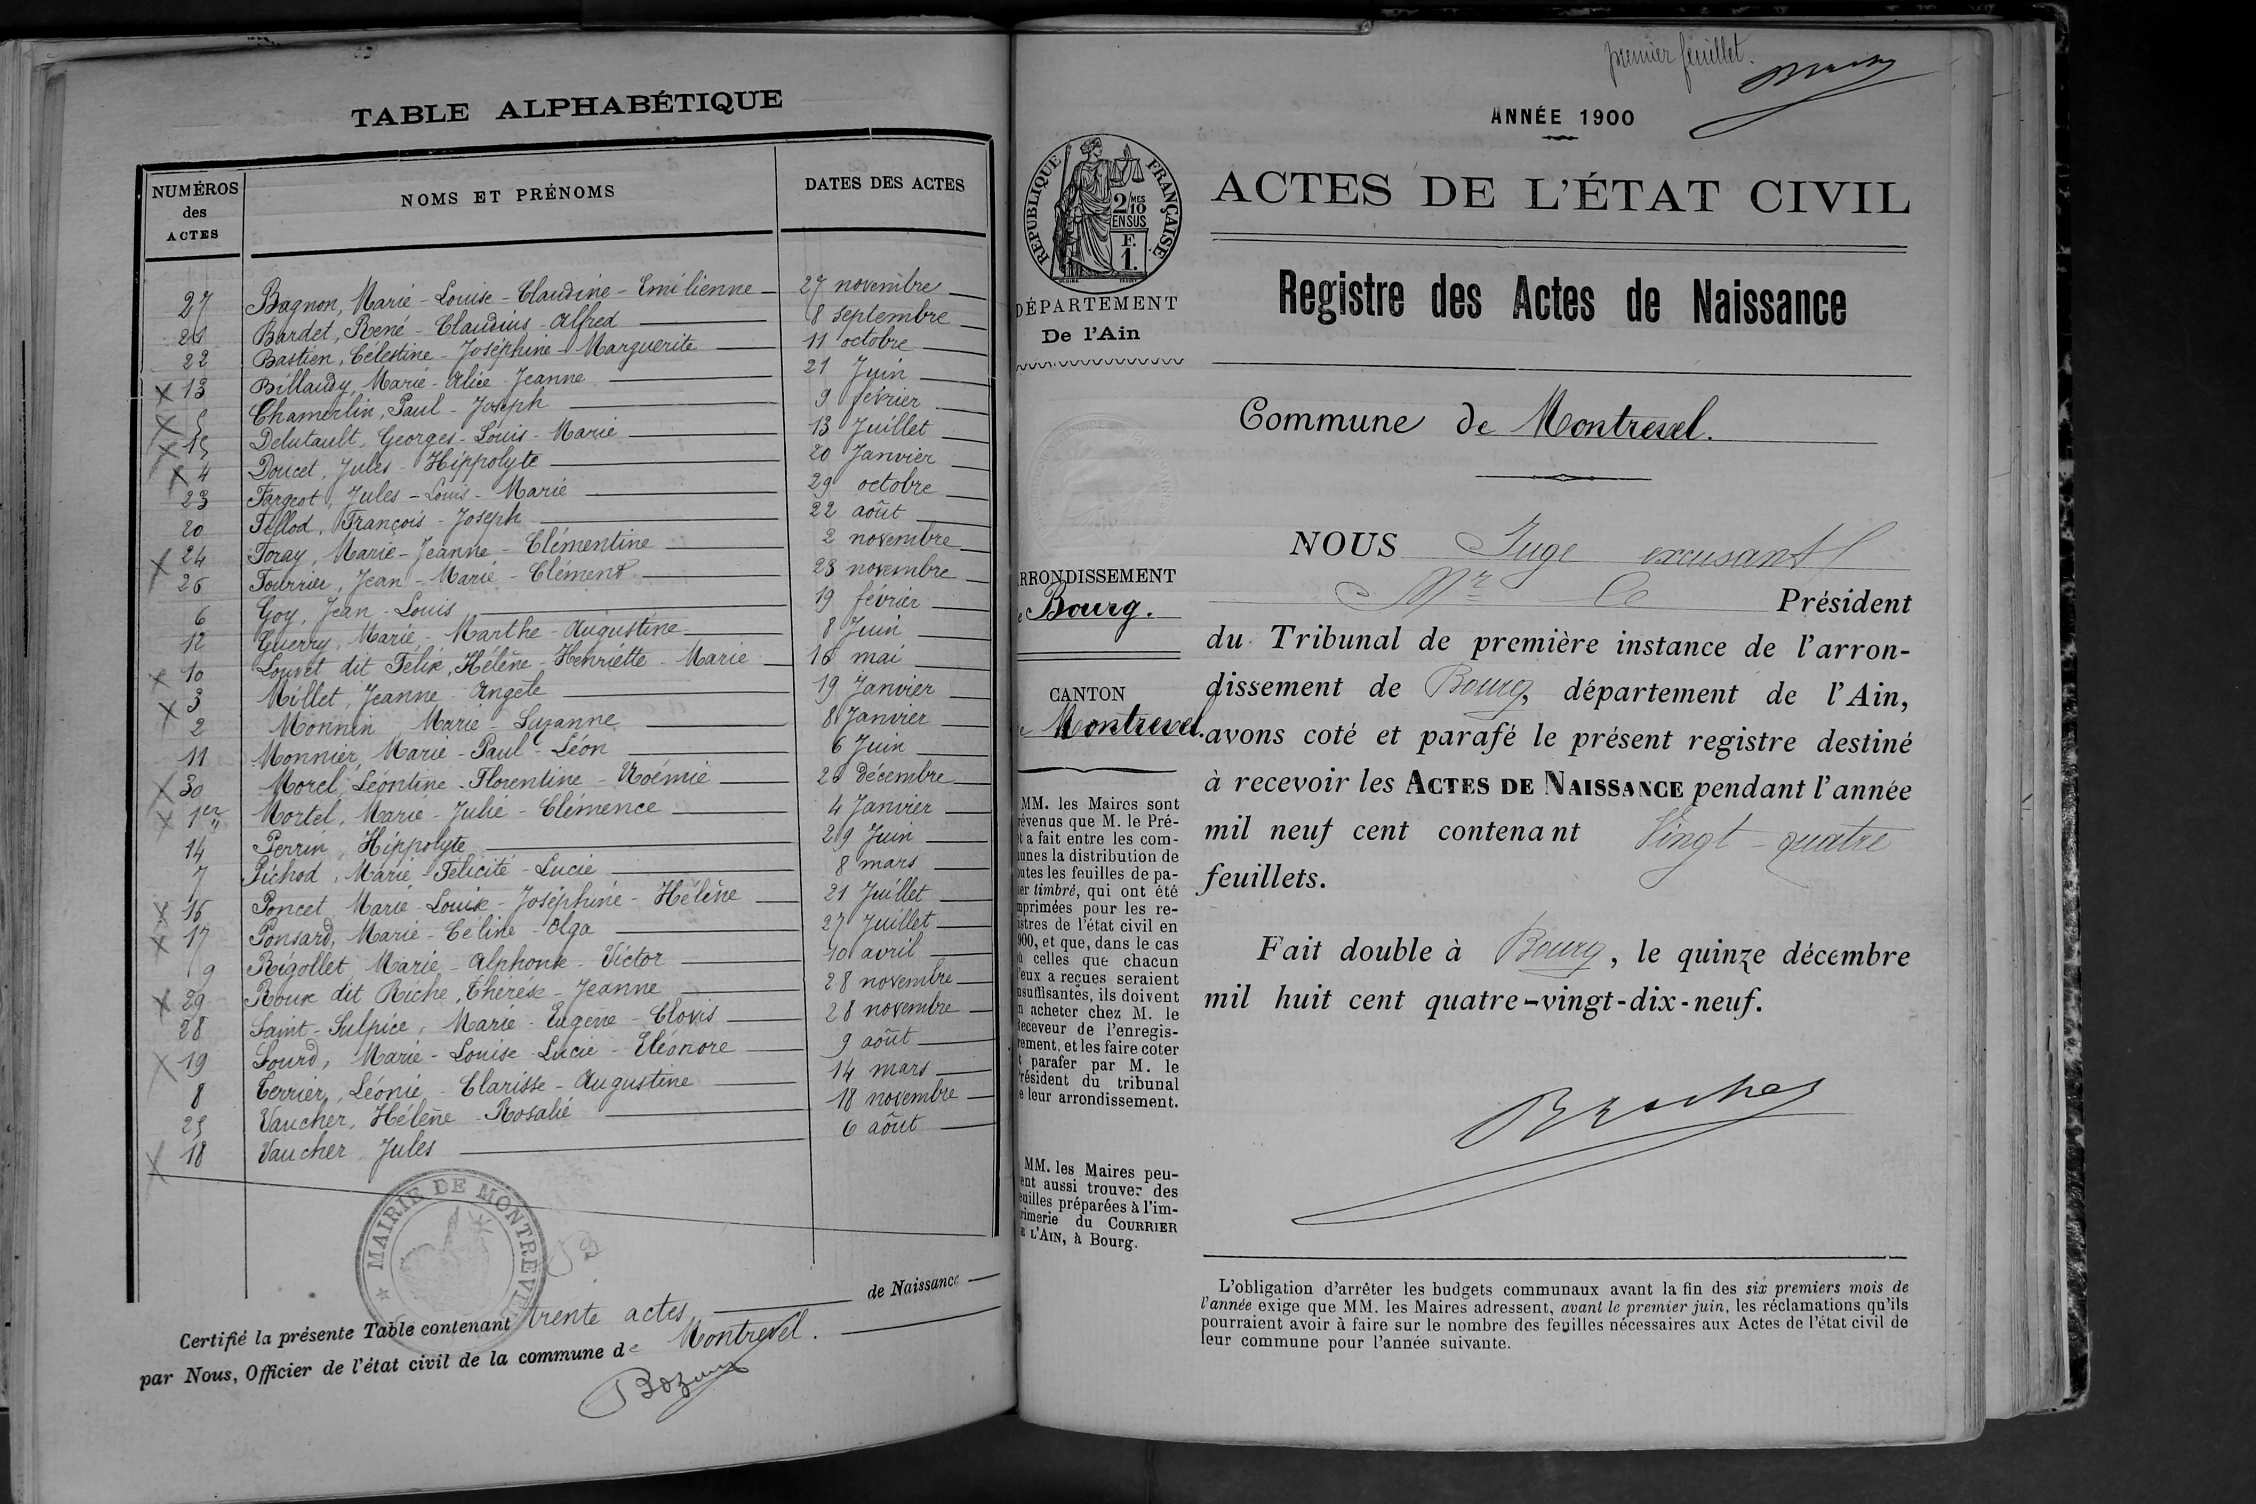 TABLE ALPHABÉTIQUE
NUMÉROS des ACTES NOMS ET PRÉNOMS DATES DES ACTES
27 Bagnon, Marie - Louise - Claudine - Emilienne 27 novembre
21 Bardet, René - Claudius - Alfred 8 septembre
22 Bastien, Célestine - Joséphine - Marguerite 11 octobre
x 13 Billaudy, Marie - Alice - Jeanne 21 Juin
x 5 Chamerlin, Paul - Joseph 9 février
x 15 Delutault, Georges - Louis - Marie 13 Juillet
x 4 Doucet, Jules - Hippolyte 20 Janvier
23 Fargeot, Jules - Louis - Marie 29 octobre
20 Fellod, François - Joseph 22 août
x 24 Foray, Marie - Jeanne - Clémentine 2 novembre
26 Fourrier, Jean - Marie - Clément 23 novembre
6 Goy, Jean - Louis 19 février
12 Guerry, Marie - Marthe - Augustine 8 Juin
x 10 Louvet dit Félix, Hélène - Henriette - Marie 16 mai
x 3 Millet, Jeanne - Angèle 19 Janvier
2 Monnin Marie - Suzanne 8 Janvier
11 Monnier, Marie - Paul - Léon 6 Juin
x 30 Morel, Léontine - Florentine - Noémie 26 décembre
x 1er Mortel, Marie - Julie - Clémence 4 Janvier
14 Perrin, Hippolyte 29 Juin
7 Pichod, Marie - Félicité - Lucie 8 mars
x 16 Poncet, Marie - Louise - Joséphine - Hélène 21 Juillet
x 17 Ponsard, Marie - Céline - Olga 27 Juillet
9 Rigollet, Marie - Alphonse - Victor 10 avril
x 29 Roux dit Riche, Thérèse - Jeanne 28 novembre
28 Saint-Sulpice, Marie - Eugène - Clovis 28 novembre
x 19 Sourd, Marie - Louise - Lucie - Eléonore 9 août
8 Terrier, Léonie - Clarisse - Augustine 14 mars
25 Vaucher, Hélène - Rosalie 18 novembre
x 18 Vaucher Jules 6 août
MAIRIE DE MONTREVEL
Certifié la présente Table contenant trente actes de Naissance
par Nous, Officier de l'état civil de la commune de Montrevel.
premier feuillet.
ANNÉE 1900
RÉPUBLIQUE FRANÇAISE
2/10 MES
EN SUS
F.
1.
ACTES DE L'ÉTAT CIVIL
DÉPARTEMENT
De l'Ain
Registre des Actes de Naissance
Commune de Montrevel.
ARRONDISSEMENT
de Bourg.
CANTON
de Montrevel.
MM. les Maires sont
prévenus que M. le Pré-
fet a fait entre les com-
munes la distribution de
toutes les feuilles de pa-
pier timbré, qui ont été
imprimées pour les re-
gistres de l'état civil en
1900, et que, dans le cas
où celles que chacun
d'eux a reçues seraient
insuffisantes, ils doivent
en acheter chez M. le
Receveur de l'enregis-
trement, et les faire coter
et parafer par M. le
Président du tribunal
de leur arrondissement.
MM. les Maires peu-
vent aussi trouver des
feuilles préparées à l'im-
primerie du COURRIER
DE L'AIN, à Bourg.
NOUS Juge excusant
Mr le Président
du Tribunal de première instance de l'arron-
dissement de Bourg, département de l'Ain,
avons coté et parafé le présent registre destiné
à recevoir les ACTES DE NAISSANCE pendant l'année
mil neuf cent contenant Vingt-quatre
feuillets.
Fait double à Bourg, le quinze décembre
mil huit cent quatre-vingt-dix-neuf.
L'obligation d'arrêter les budgets communaux avant la fin des six premiers mois de
l'année exige que MM. les Maires adressent, avant le premier juin, les réclamations qu'ils
pourraient avoir à faire sur le nombre des feuilles nécessaires aux Actes de l'état civil de
leur commune pour l'année suivante.